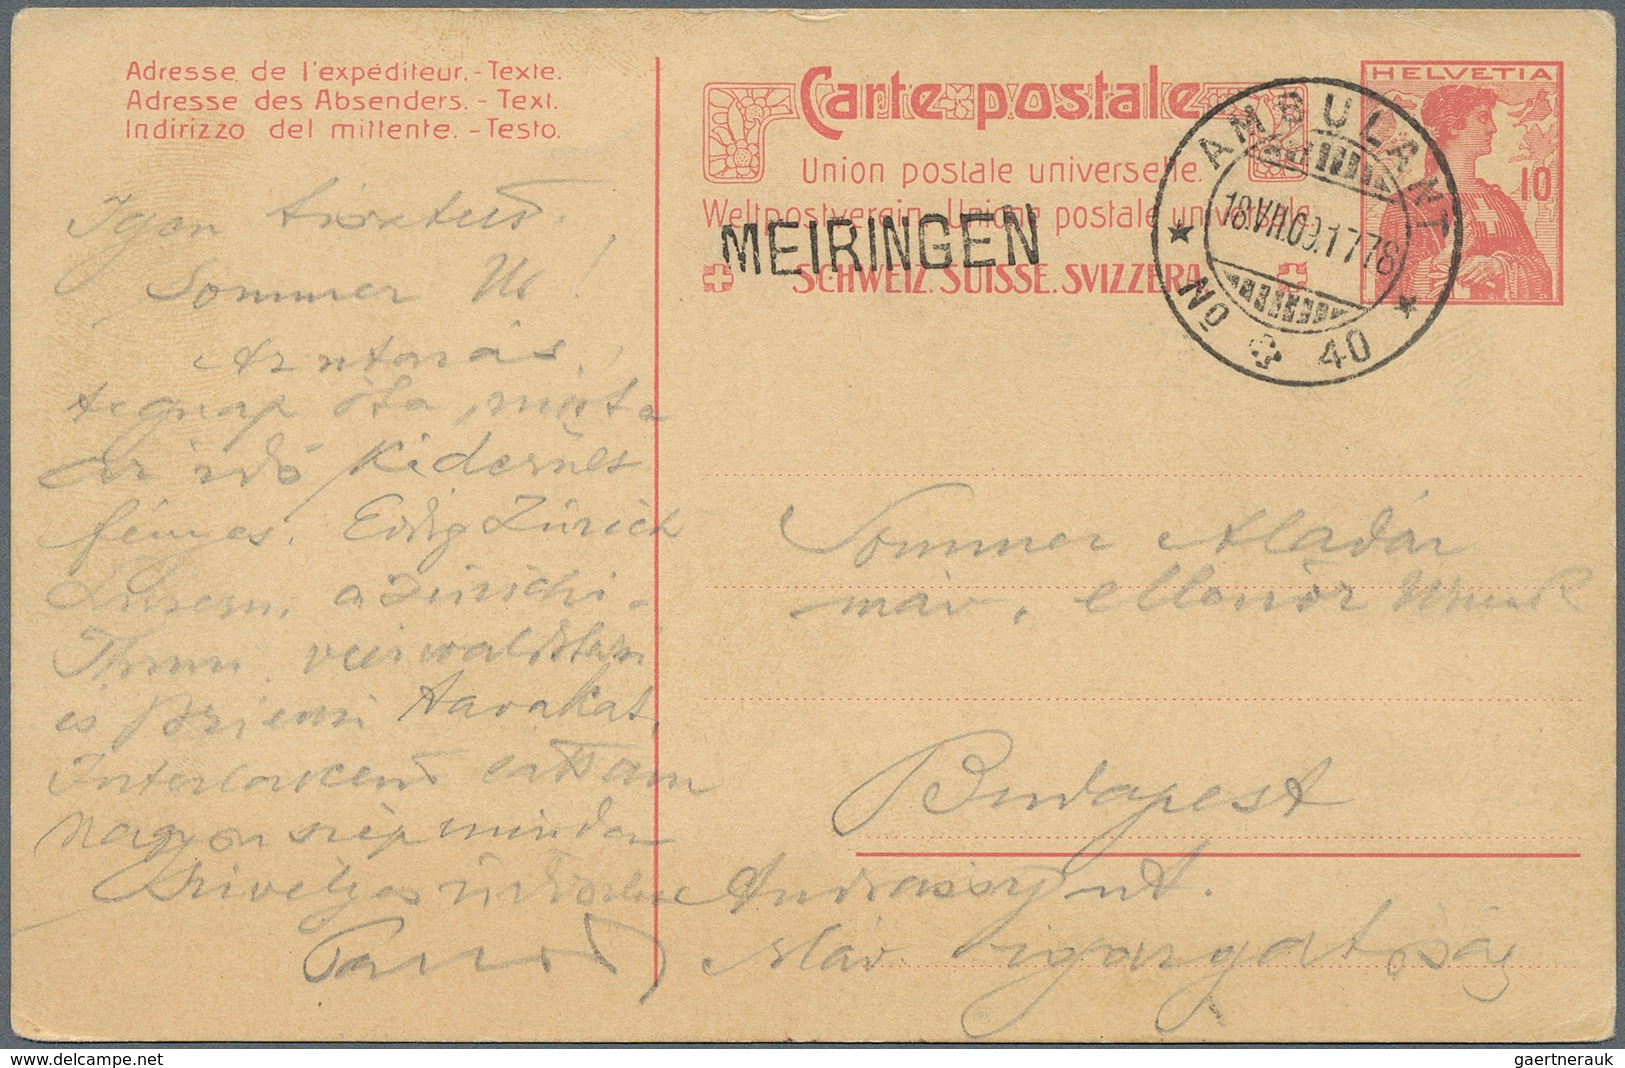 Adresse de l'expéditeur. - Texte.
Adresse des Absenders. - Text.
Indirizzo del mittente. - Testo.
Carte postale
Union postale universelle.
Weltpostverein. Unione postale universale
SCHWEIZ. SUISSE. SVIZZERA
HELVETIA
10
MEIRINGEN
AMBULANT
18.VII.09.1776
No 40
Igen tisztelt
Sommer Úr!
tegnap óta, mióta
az idő kiderült
fényes. Eddig Zürich
Luzern, a zürichi
Thuni, vierwaldstatti
és Brienzi tavakat,
Interlackent láttam
Nagyon szép minden
Szívélyes üdvözlet
Sommer Aladár
máv. ellenőr Úrnak
Budapest
Andrássy út.
Máv. igazgatóság
delcampe.net
gaertnerauk